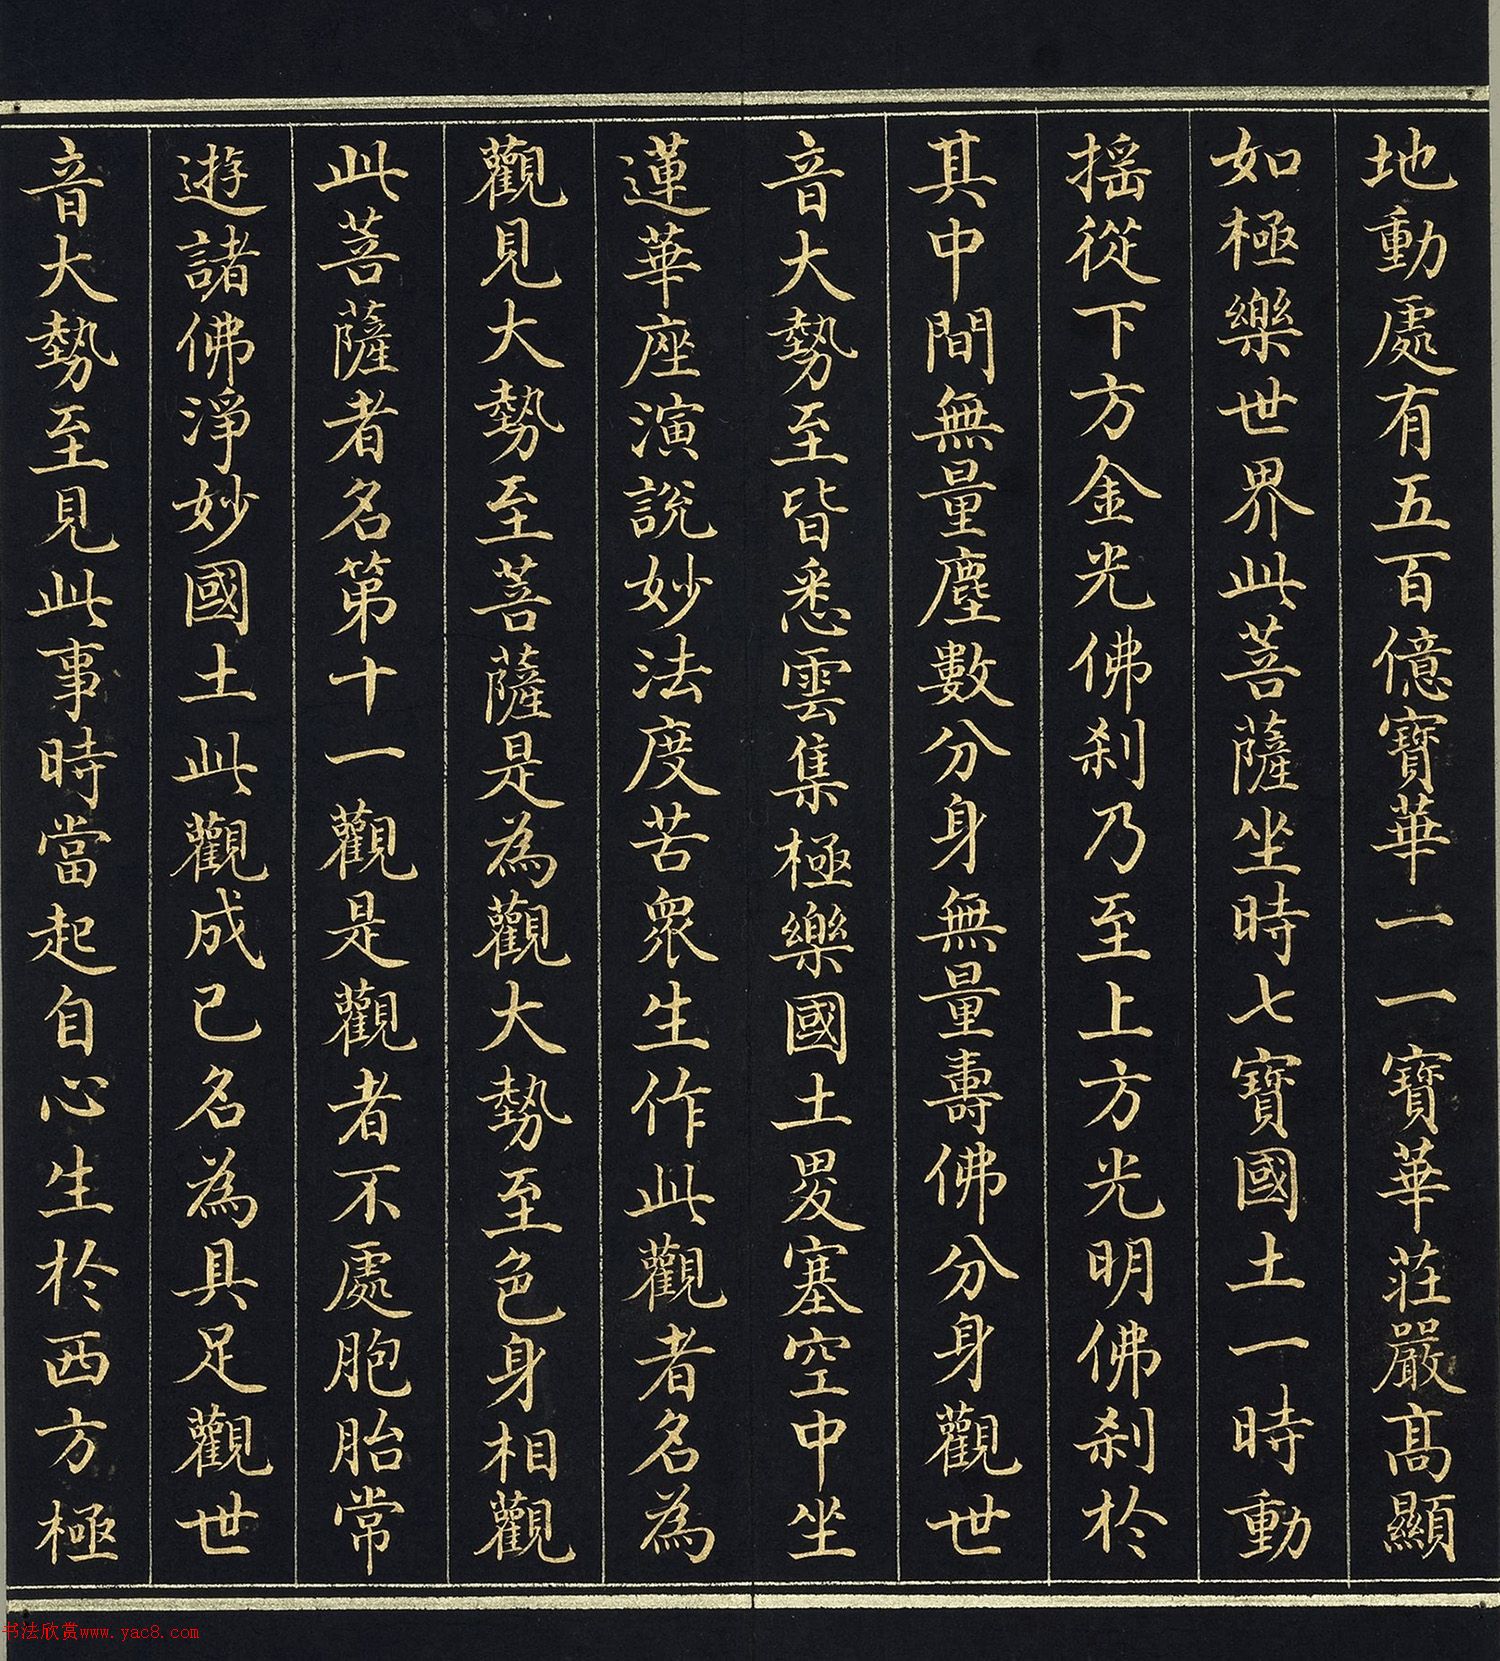 地動處有五百億寶華一一寶華莊嚴髙顯
如極樂世界此菩薩坐時七寶國土一時動
揺從下方金光佛刹乃至上方光明佛刹於
其中間無量塵數分身無量壽佛分身觀世
音大勢至皆悉雲集極樂國土畟塞空中坐
蓮華座演說妙法度苦衆生作此觀者名為
觀見大勢至菩薩是為觀大勢至色身相觀
此菩薩者名第十一觀是觀者不處胞胎常
遊諸佛淨妙國土此觀成已名為具足觀世
音大勢至見此事時當起自心生於西方極
书法欣赏www.yac8.com